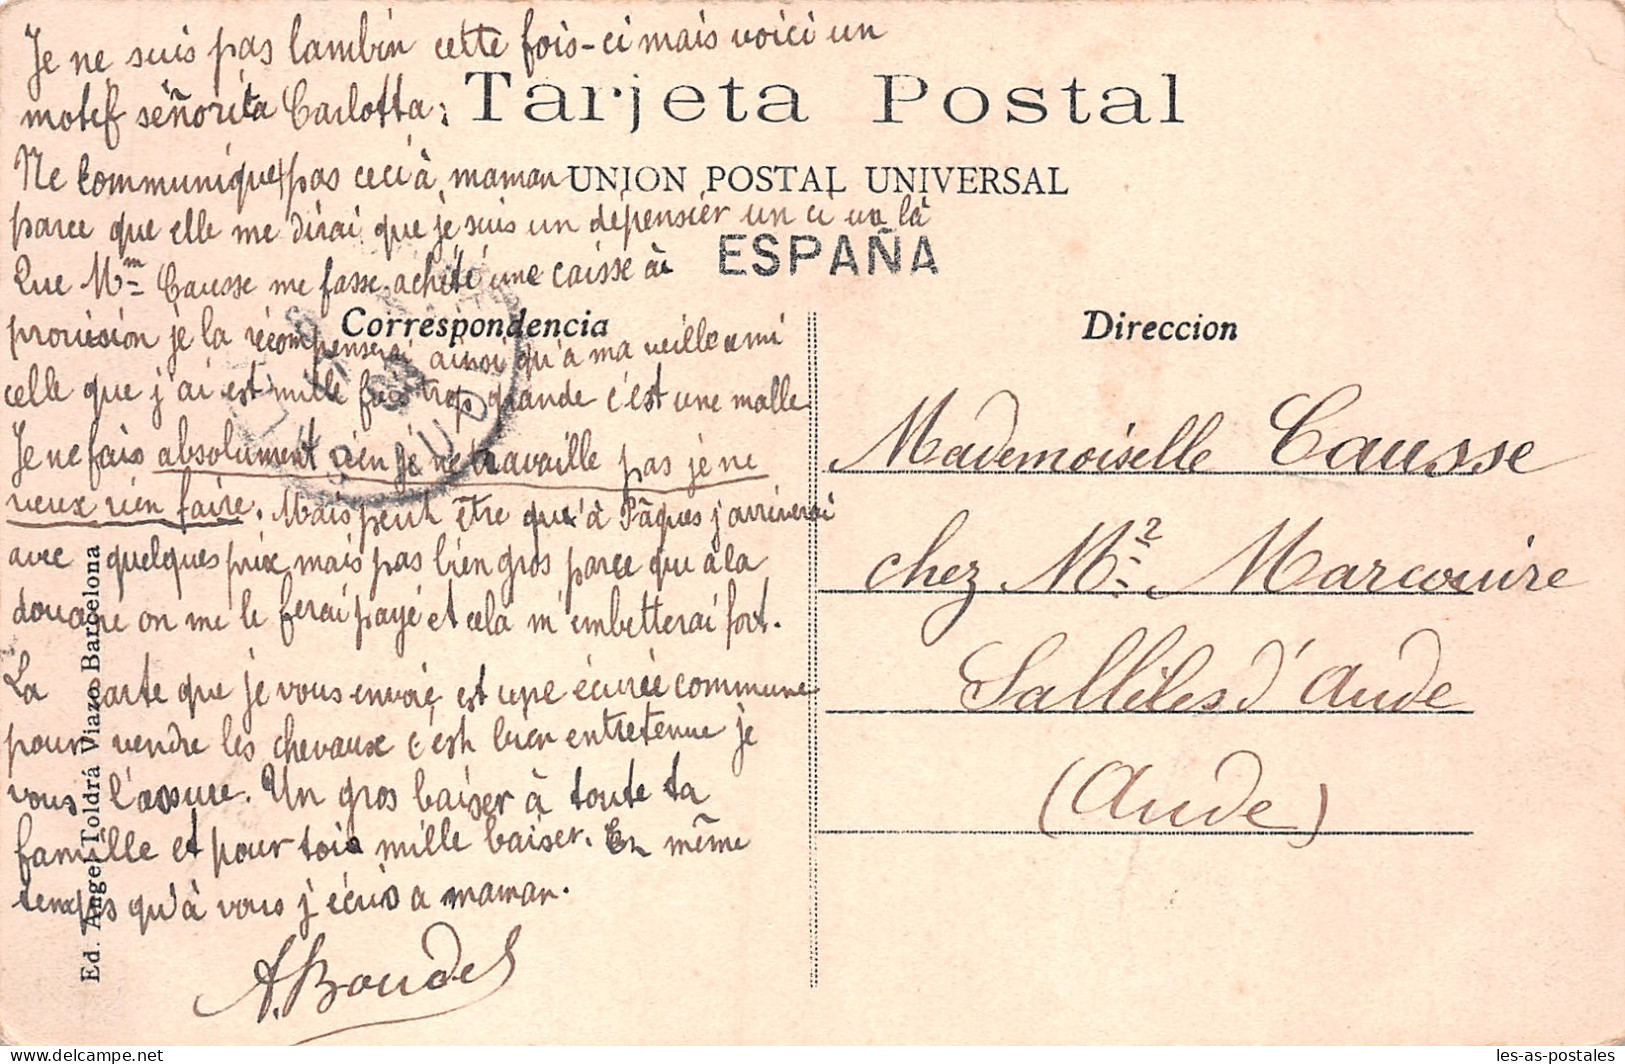 Je ne suis pas lambin cette fois-ci mais voici un
motif señorita Carlotta:
Tarjeta Postal
Ne communique pas ceci à maman
UNION POSTAL UNIVERSAL
parce que elle me dirai que je suis un dépensier un ci un là
Que Mm Causse me fasse acheté une caisse à
ESPAÑA
provision je la récompenserai ainsi qu'a ma veille ami
Correspondencia
Direccion
celle que j'ai est mille fois trop grande c'est une malle
Je ne fais absolument rien je ne travaille pas je ne
veux rien faire. Mais peut être que à Pâques j'arriverai
avec quelques prix mais pas bien gros parce qu a la
douane on me le ferai payé et cela m'embetterai fort.
La carte que je vous envoie est une écurée commune
pour vendre les chevaux c'est bien entretenue je
vous l'assure. Un gros baiser à toute ta
famille et pour toi mille baiser. En même
temps qu'à vous j'écris a maman.
A. Boudet
Mademoiselle Causse
chez Mr Marcouire
Sallèles d'Aude
(Aude)
Ed. Angel Toldrá Viazo Barcelona
les-as-postales